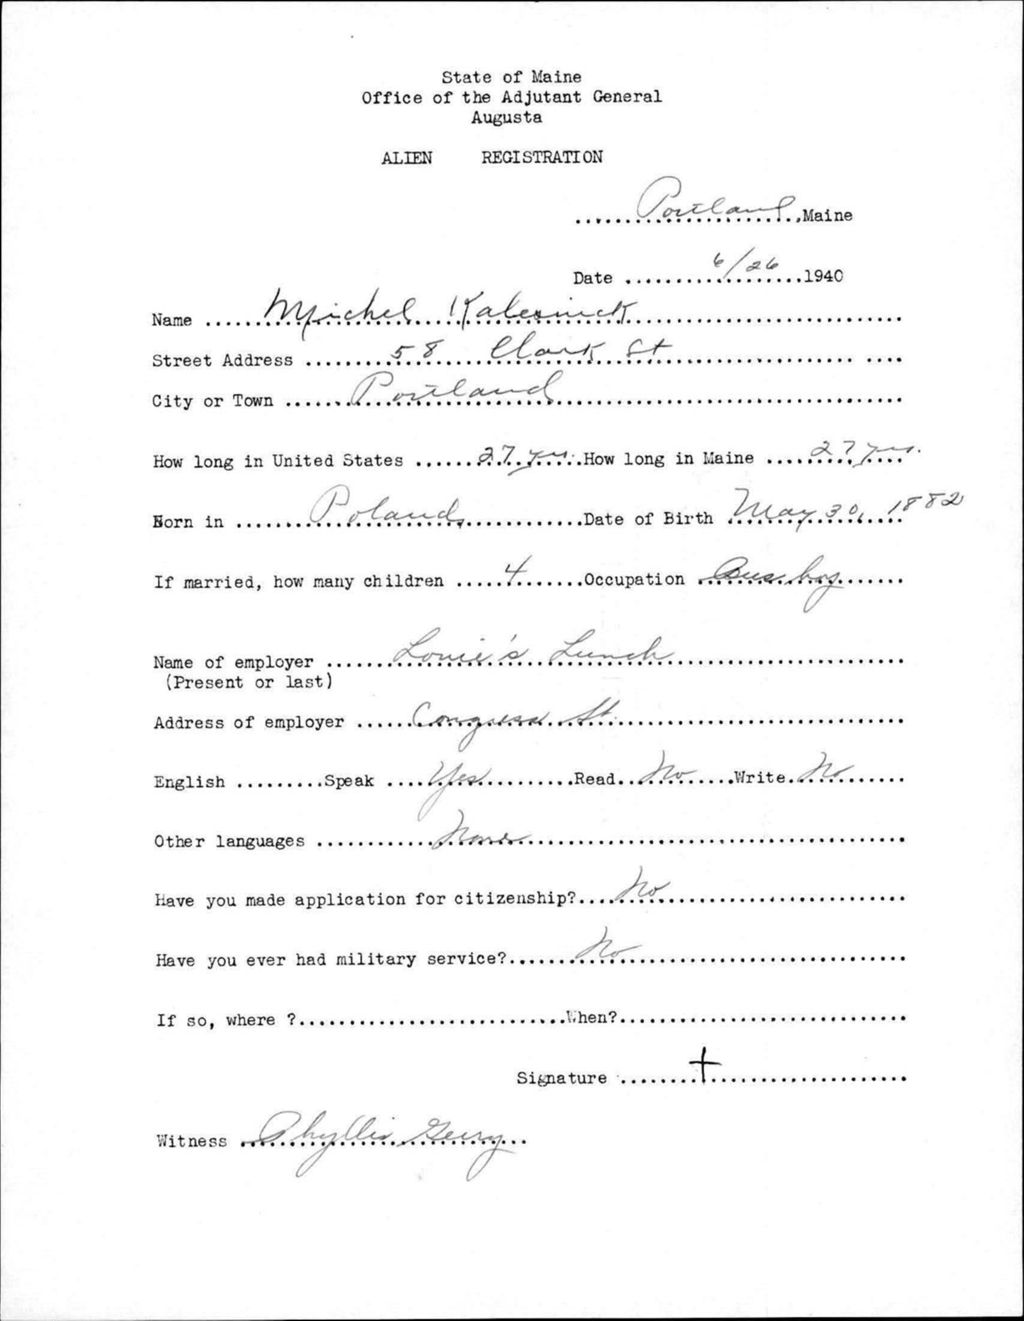 State of Maine
Office of the Adjutant General
Augusta
ALIEN REGISTRATION
Portland, Maine
Date 6/26 1940
Name Michel Kalesnick
Street Address 58 Clark St
City or Town Portland
How long in United States 27 yrs. How long in Maine 27 yrs.
Born in Poland Date of Birth May 30, 1882
If married, how many children 4 Occupation Bus boy
Name of employer Louie's Lunch
(Present or last)
Address of employer Congress St.
English Speak Yes Read No Write No
Other languages None
Have you made application for citizenship? No
Have you ever had military service? No
If so, where ? When?
Signature +
Witness Phyllis Gerry